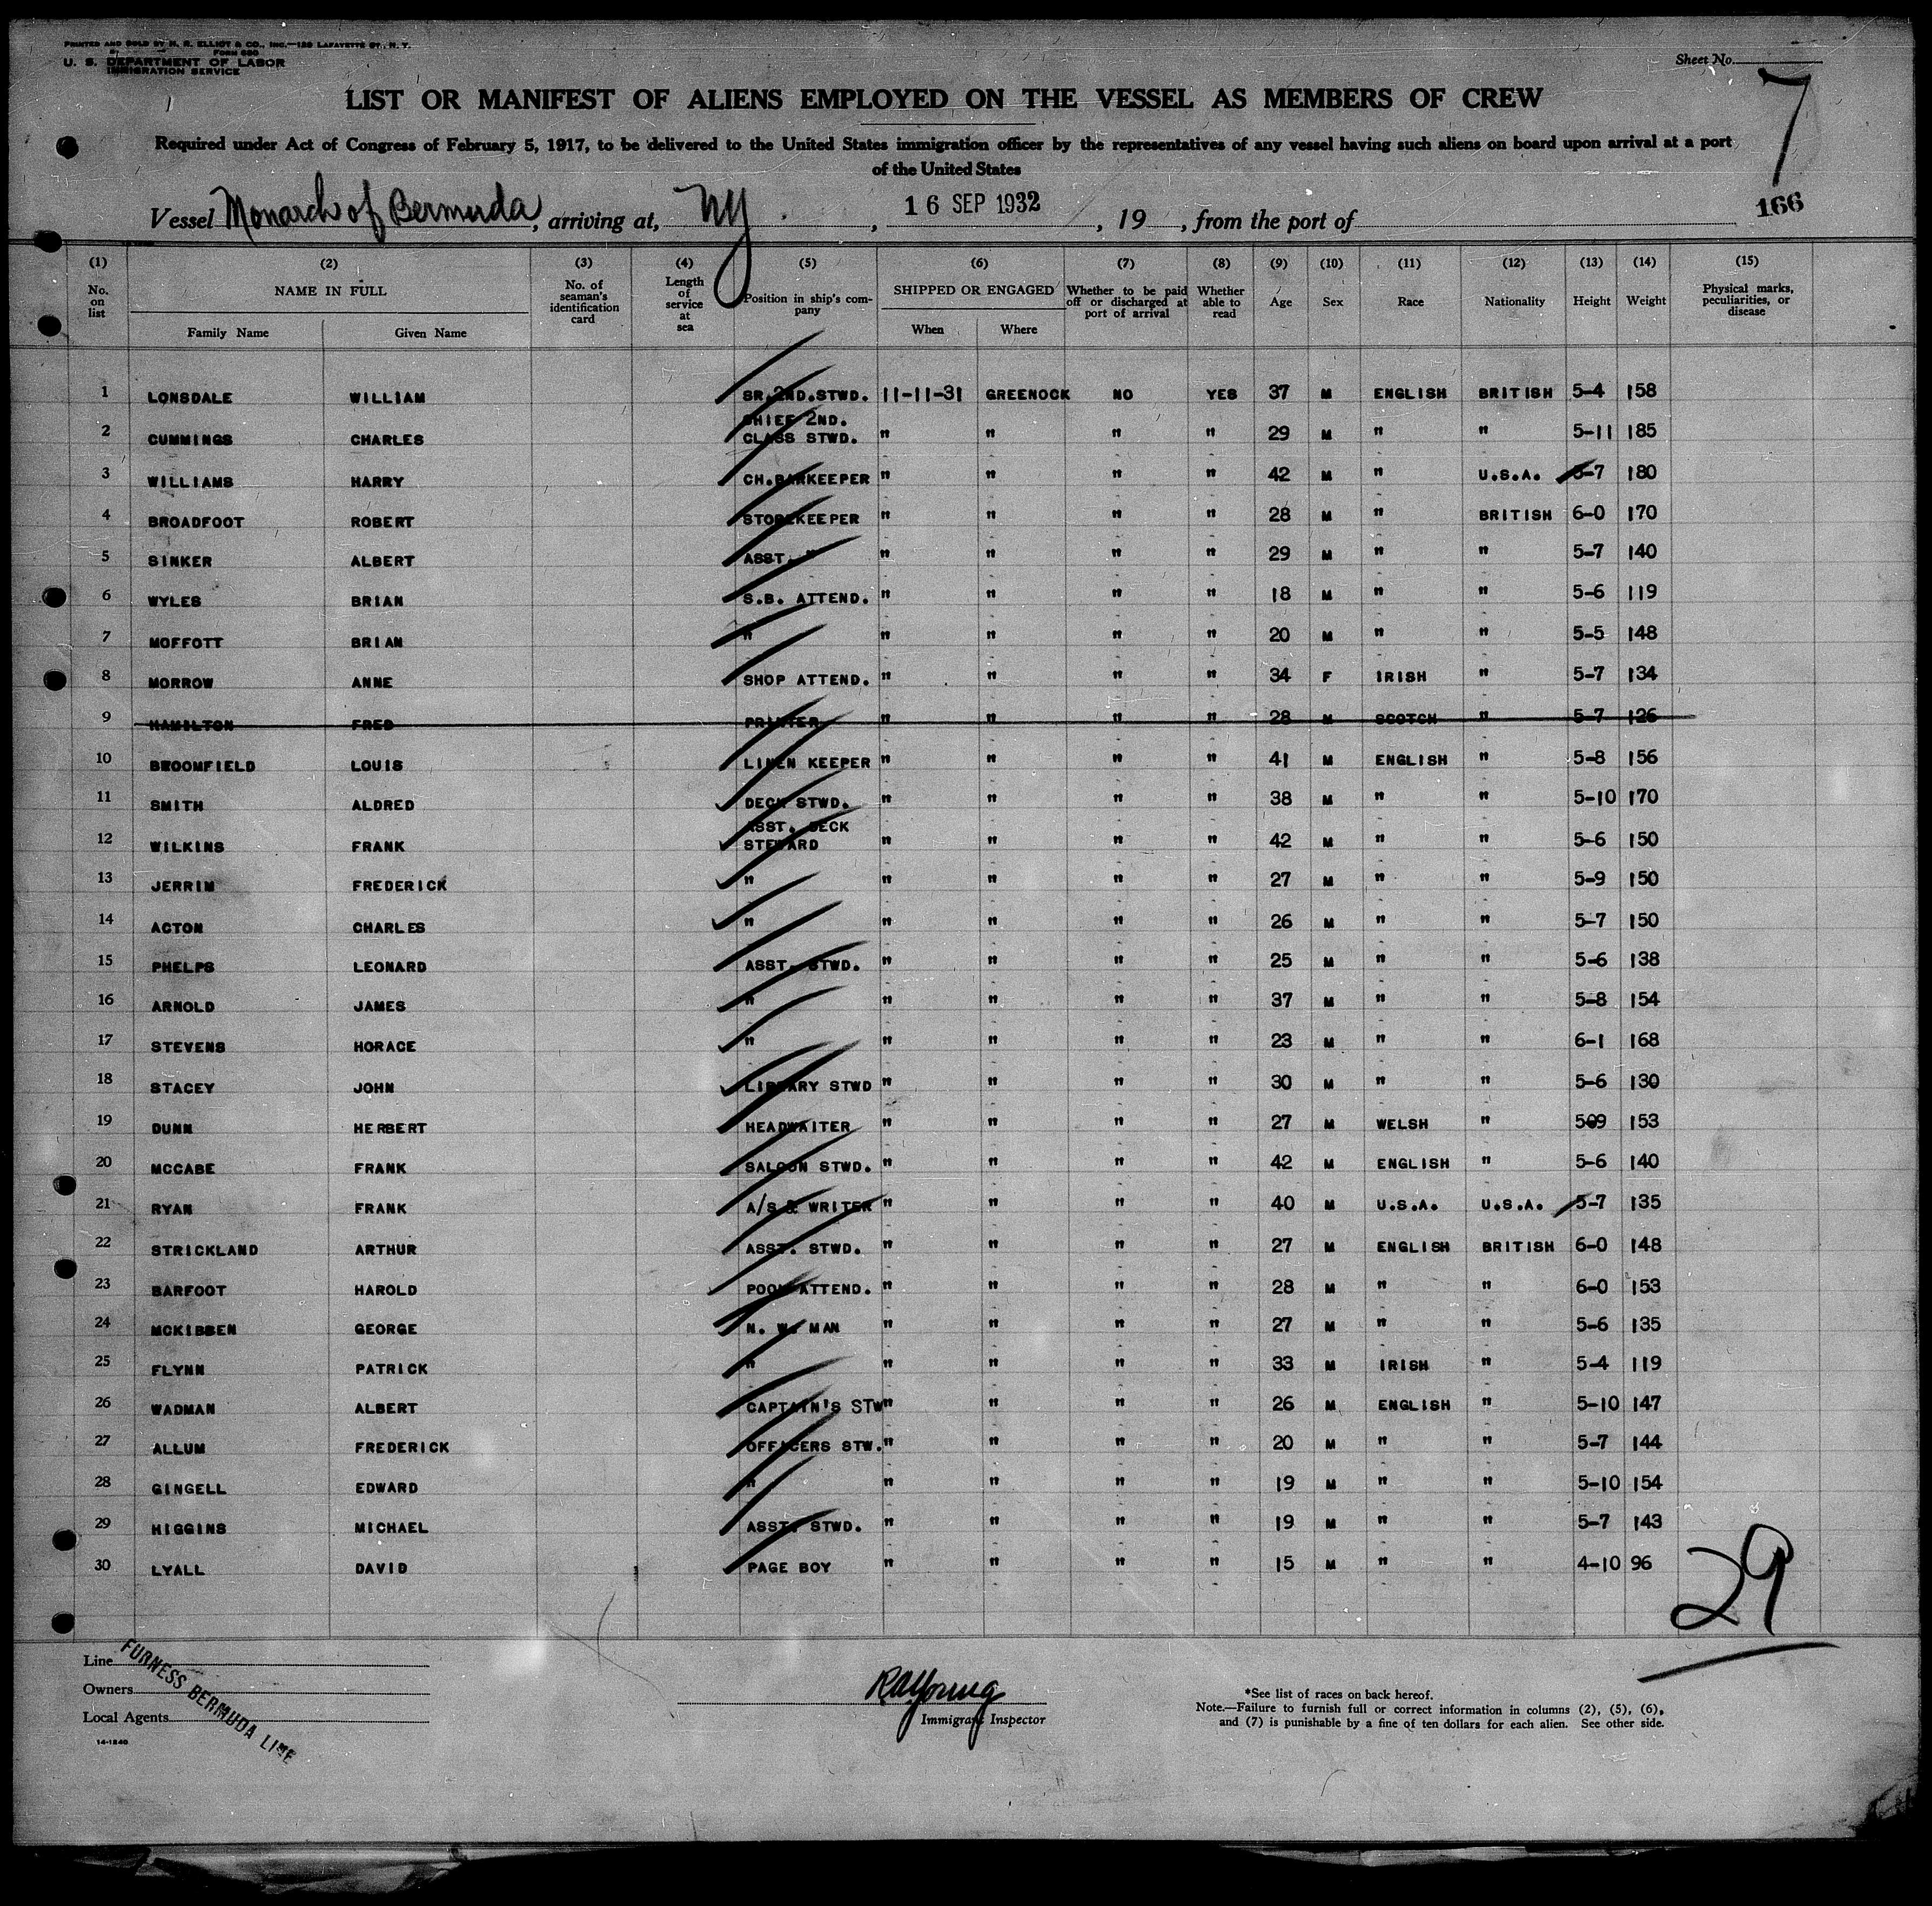 PRINTED AND SOLD BY N. R. ELLIOT & CO., INC.—129 LAFAYETTE ST., N. Y.
FORM 680
U. S. DEPARTMENT OF LABOR
IMMIGRATION SERVICE
Sheet No.
7
LIST OR MANIFEST OF ALIENS EMPLOYED ON THE VESSEL AS MEMBERS OF CREW
Required under Act of Congress of February 5, 1917, to be delivered to the United States immigration officer by the representatives of any vessel having such aliens on board upon arrival at a port
of the United States
166
Vessel Monarch of Bermuda, arriving at, NY, 16 SEP 1932, 19 , from the port of
(1) (2) (3) (4) (5) (6) (7) (8) (9) (10) (11) (12) (13) (14) (15)
No. on list NAME IN FULL No. of seaman's identification card Length of service at sea Position in ship's company SHIPPED OR ENGAGED Whether to be paid off or discharged at port of arrival Whether able to read Age Sex Race Nationality Height Weight Physical marks, peculiarities, or disease
Family Name Given Name When Where
1 LONSDALE WILLIAM SR.2ND.STWD. 11-11-31 GREENOCK NO YES 37 M ENGLISH BRITISH 5-4 158
2 CUMMINGS CHARLES CHIEF 2ND. CLASS STWD. " " " " 29 M " " 5-11 185
3 WILLIAMS HARRY CH.BARKEEPER " " " " 42 M " U.S.A. 5-7 180
4 BROADFOOT ROBERT STOREKEEPER " " " " 28 M " BRITISH 6-0 170
5 SINKER ALBERT ASST. " " " " " 29 M " " 5-7 140
6 WYLES BRIAN S.B. ATTEND. " " " " 18 M " " 5-6 119
7 MOFFOTT BRIAN " " " " " 20 M " " 5-5 148
8 MORROW ANNE SHOP ATTEND. " " " " 34 F IRISH " 5-7 134
9 HAMILTON FRED PRINTER " " " " 28 M SCOTCH " 5-7 126
10 BROOMFIELD LOUIS LINEN KEEPER " " " " 41 M ENGLISH " 5-8 156
11 SMITH ALDRED DECK STWD. " " " " 38 M " " 5-10 170
12 WILKINS FRANK ASST. DECK STEWARD " " " " 42 M " " 5-6 150
13 JERRIM FREDERICK " " " " " 27 M " " 5-9 150
14 ACTON CHARLES " " " " " 26 M " " 5-7 150
15 PHELPS LEONARD ASST. STWD. " " " " 25 M " " 5-6 138
16 ARNOLD JAMES " " " " " 37 M " " 5-8 154
17 STEVENS HORACE " " " " " 23 M " " 6-1 168
18 STACEY JOHN LIBRARY STWD " " " " 30 M " " 5-6 130
19 DUNN HERBERT HEADWAITER " " " " 27 M WELSH " 509 153
20 MCCABE FRANK SALOON STWD. " " " " 42 M ENGLISH " 5-6 140
21 RYAN FRANK A/S & WRITER " " " " 40 M U.S.A. U.S.A. 5-7 135
22 STRICKLAND ARTHUR ASST. STWD. " " " " 27 M ENGLISH BRITISH 6-0 148
23 BARFOOT HAROLD POOL ATTEND. " " " " 28 M " " 6-0 153
24 MCKIBBEN GEORGE N. W. MAN " " " " 27 M " " 5-6 135
25 FLYNN PATRICK " " " " " 33 M IRISH " 5-4 119
26 WADMAN ALBERT CAPTAIN'S STW " " " " 26 M ENGLISH " 5-10 147
27 ALLUM FREDERICK OFFICERS STW. " " " " 20 M " " 5-7 144
28 GINGELL EDWARD " " " " " 19 M " " 5-10 154
29 HIGGINS MICHAEL ASST. STWD. " " " " 19 M " " 5-7 143
30 LYALL DAVID PAGE BOY " " " " 15 M " " 4-10 96
29
Line
Owners
Local Agents
FURNESS BERMUDA LINE
14-1240
RAYoung
Immigrant Inspector
*See list of races on back hereof.
Note.—Failure to furnish full or correct information in columns (2), (5), (6),
and (7) is punishable by a fine of ten dollars for each alien. See other side.